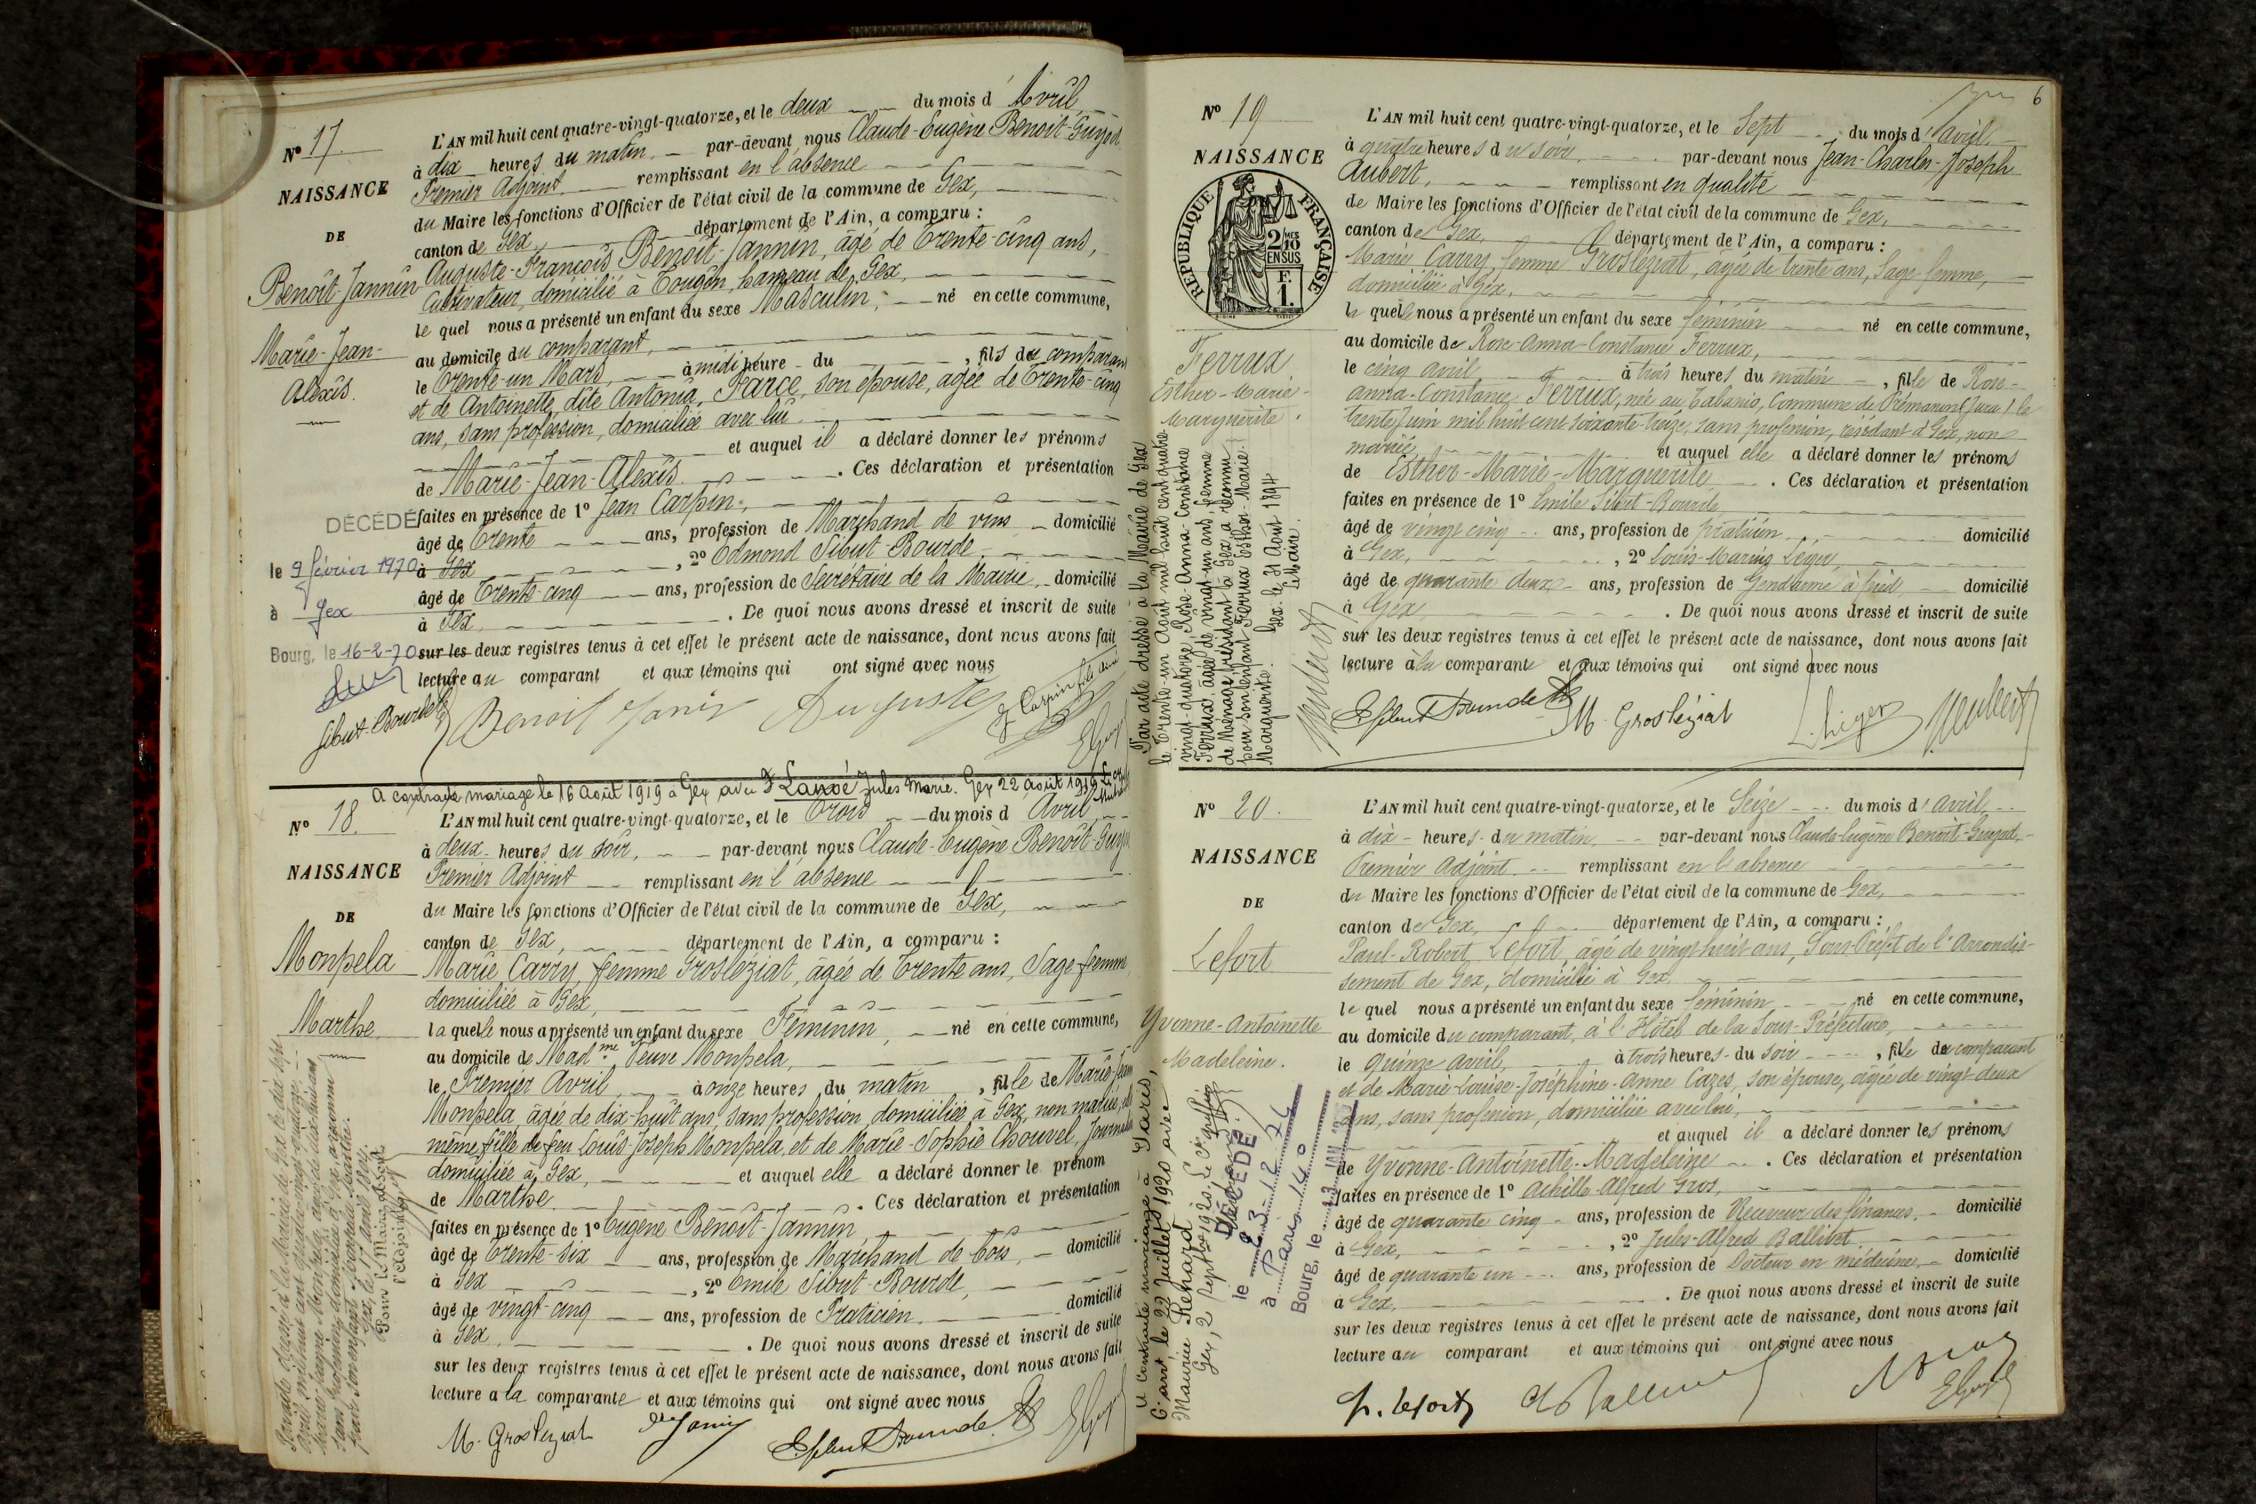 N° 17.
NAISSANCE
DE
Benoît-Jannin
Marie-Jean-
Alexis.
DÉCÉDÉ
le 9 février 1970
à Gex
Bourg, le 16-2-70
L'AN mil huit cent quatre-vingt-quatorze, et le deux du mois d'Avril
à dix heures du matin. par-devant nous Claude-Eugène Benoit-Guyod
Premier Adjoint remplissant en l'absence
du Maire les fonctions d'Officier de l'état civil de la commune de Gex,
canton de Gex, département de l'Ain, a comparu :
Auguste-François Benoît-Jannin, âgé de Trente-cinq ans,
Cultivateur, domicilié à Tougin, hameau de Gex,
le quel nous a présenté un enfant du sexe Masculin, né en cette commune,
au domicile du comparant,
le Trente-un Mars, à midi heure du , fils du comparant
et de Antoinette, dite Antonia, Farce, son épouse, âgée de Trente-cinq
ans, sans profession, domiciliée avec lui
et auquel il a déclaré donner les prénoms
de Marie-Jean-Alexis. Ces déclaration et présentation
faites en présence de 1° Jean Carpin,
âgé de Trente ans, profession de Marchand de vins domicilié
à Gex , 2° Edmond Sibut-Bourde,
âgé de Trente-cinq ans, profession de Secrétaire de la Mairie, domicilié
à Gex . De quoi nous avons dressé et inscrit de suite
sur les deux registres tenus à cet effet le présent acte de naissance, dont nous avons fait
lecture au comparant et aux témoins qui ont signé avec nous
Sibut-Bourde Benoit Janin Auguste J Carpin fils
A contracté mariage le 16 août 1919 à Gex avec Lanxé Jules Marie. Gex 22 août 1919
N° 18.
NAISSANCE
DE
Monpela
Marthe
L'AN mil huit cent quatre-vingt-quatorze, et le Trois du mois d'Avril
à deux heures du soir, par-devant nous Claude-Eugène Benoît-Guyod
Premier Adjoint remplissant en l'absence
du Maire les fonctions d'Officier de l'état civil de la commune de Gex,
canton de Gex, département de l'Ain, a comparu :
Marie Carry, femme Grosleziat, âgée de Trente ans, Sage-femme,
domiciliée à Gex,
la quelle nous a présenté un enfant du sexe Féminin, né en cette commune,
au domicile de Mad.me Veuve Monpela,
le Premier Avril, à onze heures du matin , fille de Marie-Jeanne
Monpela, âgée de dix-huit ans, sans profession, domiciliée à Gex, non mariée, elle
même fille de feu Louis-Joseph Monpela et de Marie-Sophie Chouvel,
domiciliée à Gex, et auquel elle a déclaré donner le prénom
de Marthe . Ces déclaration et présentation
faites en présence de 1° Eugène Benoît-Jannin
âgé de Trente-six ans, profession de Marchand de bois, domicilié
à Gex , 2° Emile Sibut-Bourde,
âgé de vingt-cinq ans, profession de Praticien domicilié
à Gex, . De quoi nous avons dressé et inscrit de suite
sur les deux registres tenus à cet effet le présent acte de naissance, dont nous avons fait
lecture à la comparante et aux témoins qui ont signé avec nous
M. Grosleziat
6
N° 19
NAISSANCE
RÉPUBLIQUE FRANÇAISE
2/10 MES EN SUS
F. 1.
Ferrux
Esther-Marie-
Marguerite.
Par acte dressé à la Mairie de Gex
le Trente-un Août mil huit cent quatre
vingt-quatorze, Rose-Anna-Constance
Ferrux, âgée de vingt-un ans, femme
de Ménage, résidant à Gex, a reconnu
pour son enfant Ferrux Esther-Marie-
Marguerite. Gex le 31 Août 1894
Le Maire.
L'AN mil huit cent quatre-vingt-quatorze, et le Sept du mois d'avril,
à quatre heures du soir, par-devant nous Jean-Charles-Joseph
Aubert, remplissant en qualité
de Maire les fonctions d'Officier de l'état civil de la commune de Gex,
canton de Gex, département de l'Ain, a comparu :
Marie Carry, femme Grosleziat, âgée de trente ans, Sage-femme,
domiciliée à Gex,
la quelle nous a présenté un enfant du sexe féminin né en cette commune,
au domicile de Rose-Anna-Constance Ferrux,
le cinq avril à trois heures du matin , fille de Rose-
Anna-Constance Ferrux, née au Tabanio, Commune de Prémanon (Jura) le
trente Juin mil huit cent soixante-treize, sans profession, résidant à Gex, non
mariée, et auquel elle a déclaré donner les prénoms
de Esther-Marie-Marguerite . Ces déclaration et présentation
faites en présence de 1° Emile Sibut-Bourde,
âgé de vingt cinq ans, profession de praticien domicilié
à Gex, , 2° Louis-Marius Léger,
âgé de quarante deux ans, profession de Gendarme à pied, domicilié
à Gex . De quoi nous avons dressé et inscrit de suite
sur les deux registres tenus à cet effet le présent acte de naissance, dont nous avons fait
lecture à la comparante et aux témoins qui ont signé avec nous
M. Grosleziat
N° 20.
NAISSANCE
DE
Lefort
Yvonne-Antoinette
Madeleine.
A contracté mariage à Paris,
6e arrt le 22 Juillet 1920 avec
Maurice Renard
Gex, 2 Septbre 1920. Le Greffier
DÉCÉDÉ
le 23.12.76
à Paris 14e
Bourg, le 13 JAN.
L'AN mil huit cent quatre-vingt-quatorze, et le Seize du mois d'avril,
à dix heures du matin par-devant nous Claude-Eugène Benoît-Guyod,
Premier Adjoint remplissant en l'absence
du Maire les fonctions d'Officier de l'état civil de la commune de Gex,
canton de Gex, département de l'Ain, a comparu :
Paul-Robert Lefort, âgé de vingt-huit ans, Sous-Préfet de l'Arrondis-
sement de Gex, domicilié à Gex,
le quel nous a présenté un enfant du sexe féminin né en cette commune,
au domicile du comparant, à l'Hôtel de la Sous-Préfecture,
le quinze avril, à trois heures du soir , fille du comparant
et de Marie-Louise-Joséphine-Anne Cazes, son épouse, âgée de vingt-deux
ans, sans profession, domiciliée avec lui,
et auquel il a déclaré donner les prénoms
de Yvonne-Antoinette-Madeleine . Ces déclaration et présentation
faites en présence de 1° Achille-Alfred Gros,
âgé de quarante cinq ans, profession de Receveur des finances, domicilié
à Gex, , 2° Jules-Alfred Ballivet
âgé de quarante un ans, profession de Docteur en médecine, domicilié
à Gex, . De quoi nous avons dressé et inscrit de suite
sur les deux registres tenus à cet effet le présent acte de naissance, dont nous avons fait
lecture au comparant et aux témoins qui ont signé avec nous
P. Lefort